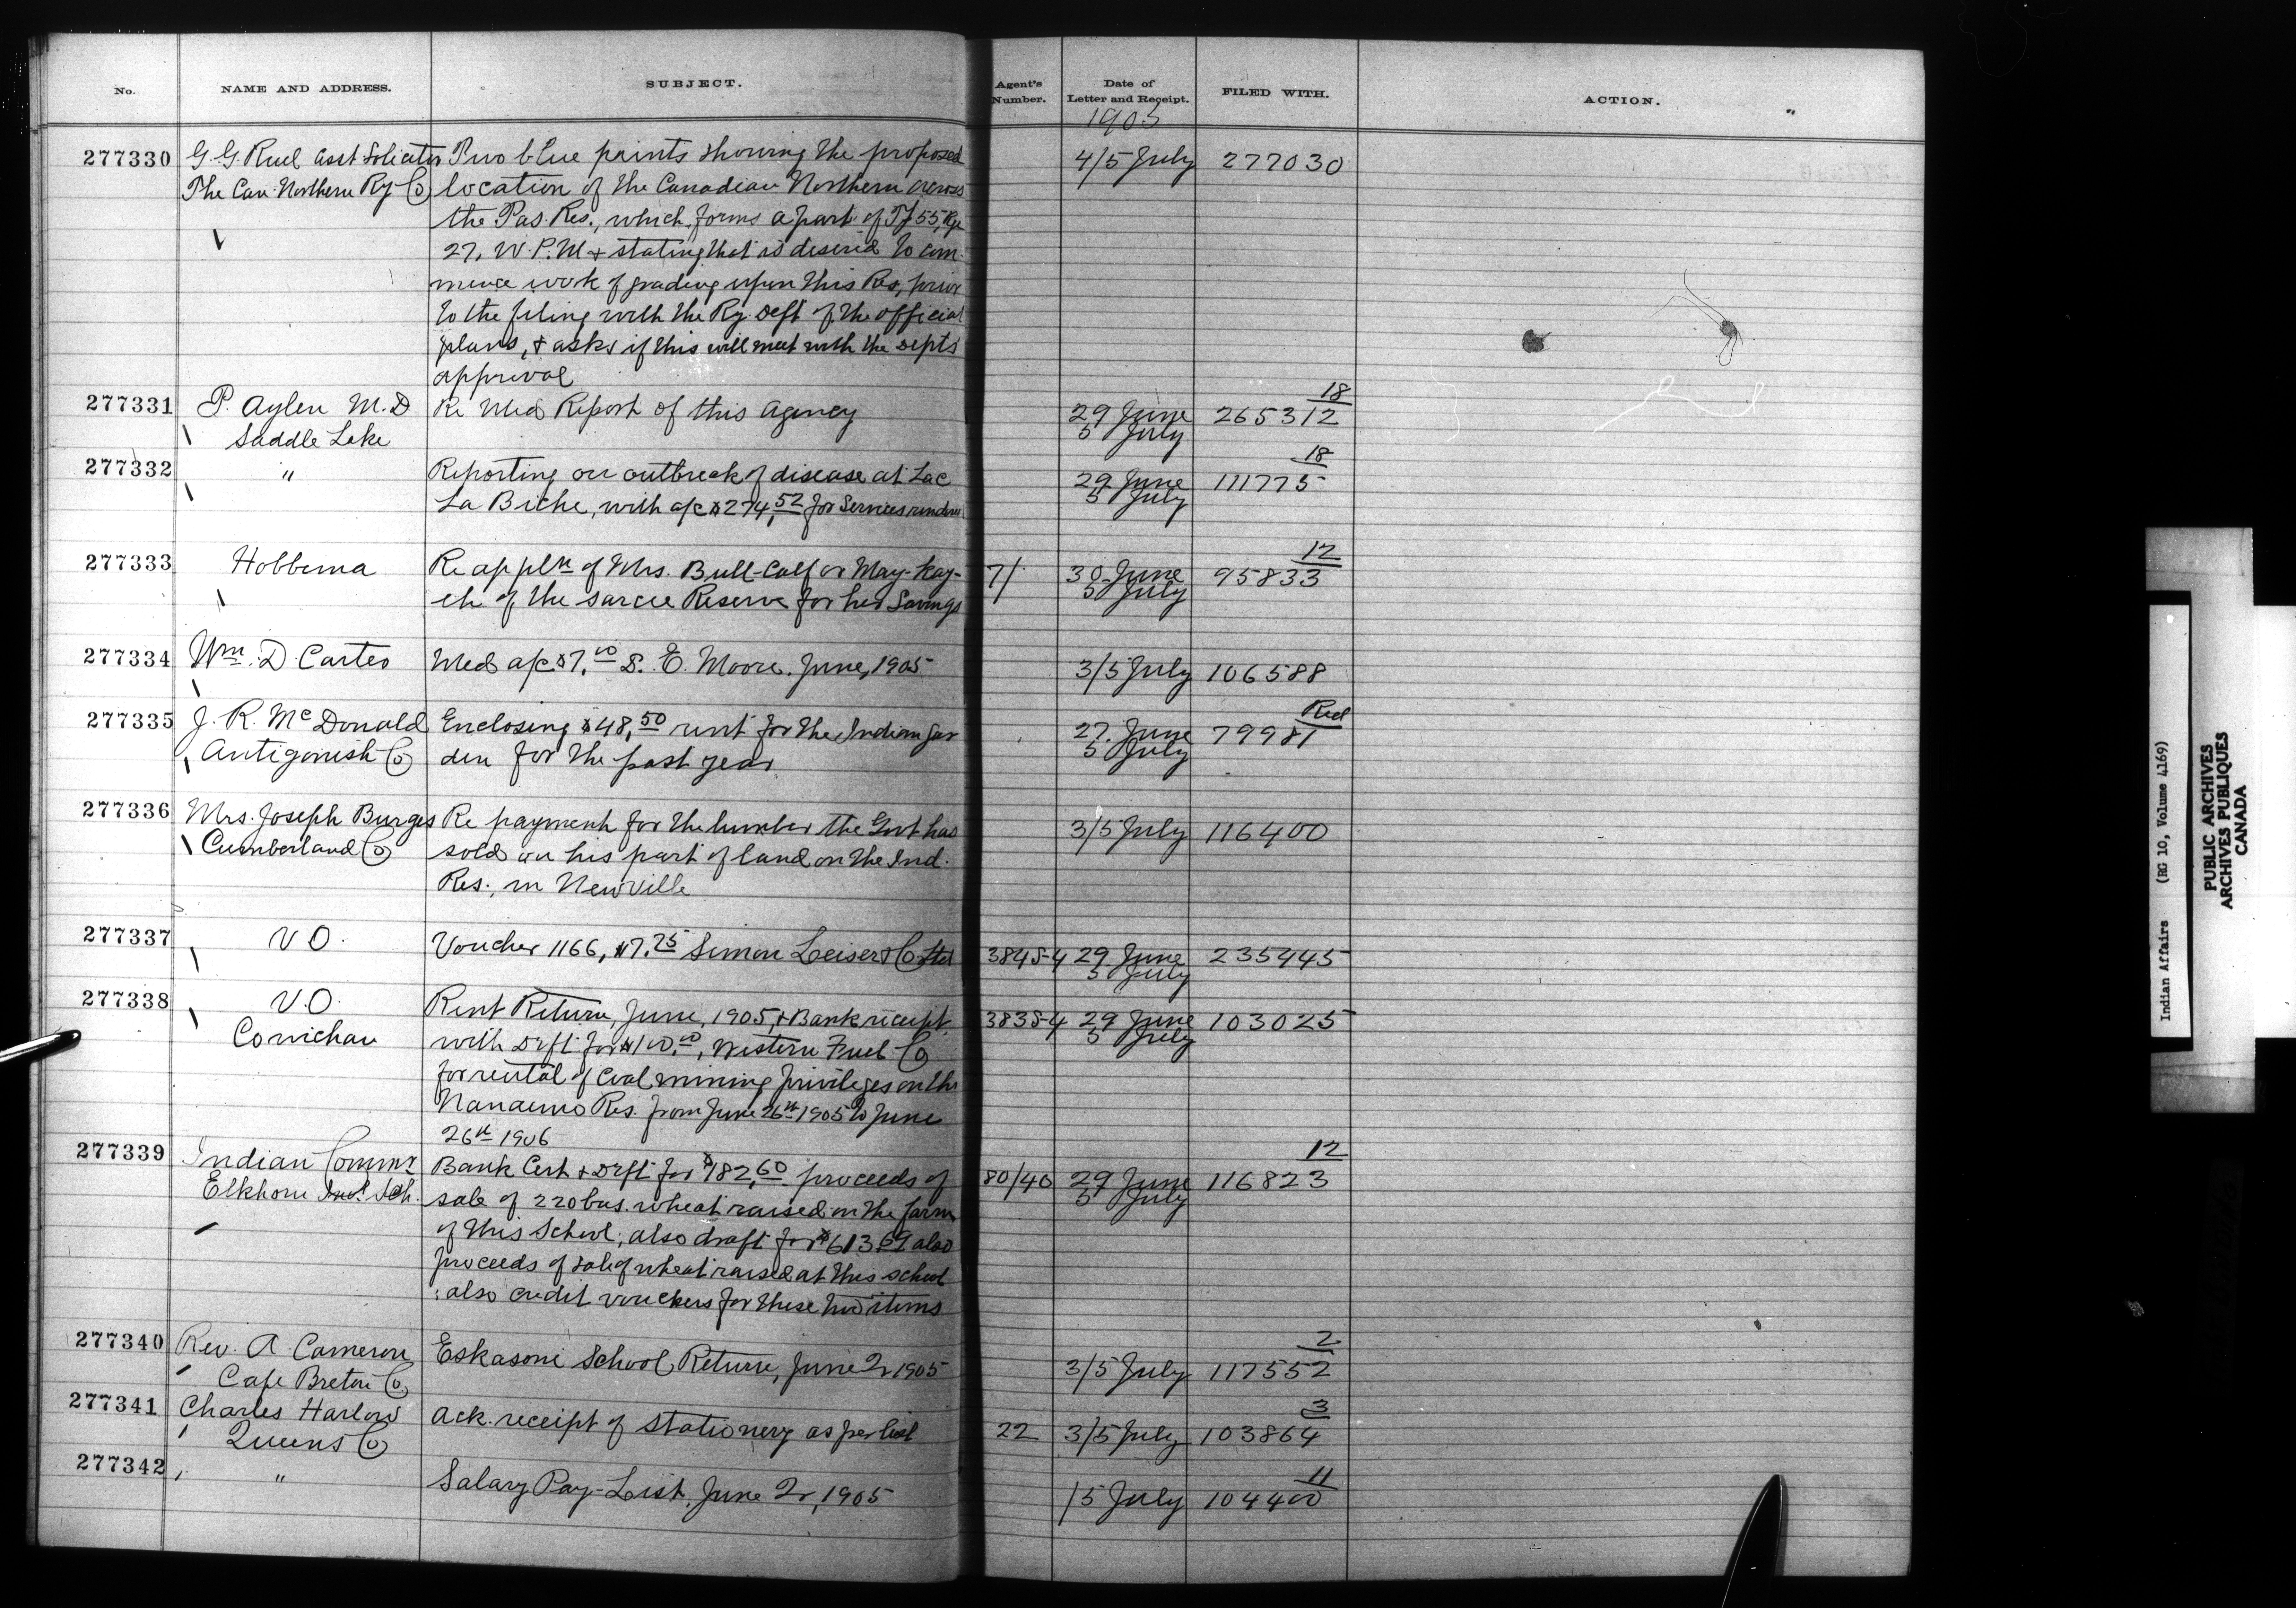 No. NAME AND ADDRESS. SUBJECT. Agent's Number. Date of Letter and Receipt. FILED WITH. ACTION.
1905
277330 G. G. Ruel Asst Solicitor Two blue prints showing the proposed 4/5 July 277030
The Can Northern Ry Co location of the Canadian Northern across
the Pas Res., which forms a part of Tp 55, Rge
27, W.P.M + stating that is desired to com-
mence work of grading upon this Res, prior
to the filing with the Ry Dept of the official
plans, + asks if this will meet with the Depts
approval
277331 P. Aylen M.D Re Med Report of this Agency 29 June 265312 18
Saddle Lake 5 July
277332 " Reporting on outbreak of disease at Lac 29 June 111775 18
La Biche, with a/c $274.52 for Services 5 July
277333 Hobbema Re appln of Mrs. Bull-Calf or May-Kay- 7/ 30 June 95833 12
eh of the Sarcee Reserve for her Savings 5 July
277334 Wm. D Carter Med a/c $7.00 S. E. Moore. June, 1905 3/5 July 106588
277335 J. R. McDonald Enclosing $48.50 rent for the Indian Gar 27 June 79981 Red
Antigonish Co den for the past year 5 July
277336 Mrs. Joseph Burges Re payment for the lumber the Govt has 3/5 July 116400
Cumberland Co sold on his part of land on the Ind.
Res., in Newville
277337 V O. Voucher 1166, $7.75 Simon Leiser & Co Ltd 3845-4 29 June 235445
5 July
277338 V.O. Rent Return, June, 1905, + Bank receipt 3838-4 29 June 103025
Cowichan with Drft for $100.00, Western Fuel Co 5 July
for rental of Coal mining privileges on the
Nanaimo Res. from June 26th 1905 to June
26th 1906
277339 Indian Commr Bank Cert + Drft for $182.60 proceeds of 80/40 29 June 116823 12
Elkhorn Indl Sch. sale of 220 bus. wheat raised on the farm 5 July
of this School; also draft for $613.69 also
proceeds of sale of wheat raised at this school
; also credit vouchers for these two items
277340 Rev. A Cameron Eskasoni School Return, June 2r 1905 3/5 July 117552 2
Cape Breton Co.
277341 Charles Harlow Ack. receipt of stationery as per list 22 3/5 July 103864 3
Queens Co
277342 " Salary Pay-List. June 2r, 1905 /5 July 104400 11
Indian Affairs (RG 10, Volume 4169)
PUBLIC ARCHIVES
ARCHIVES PUBLIQUES
CANADA